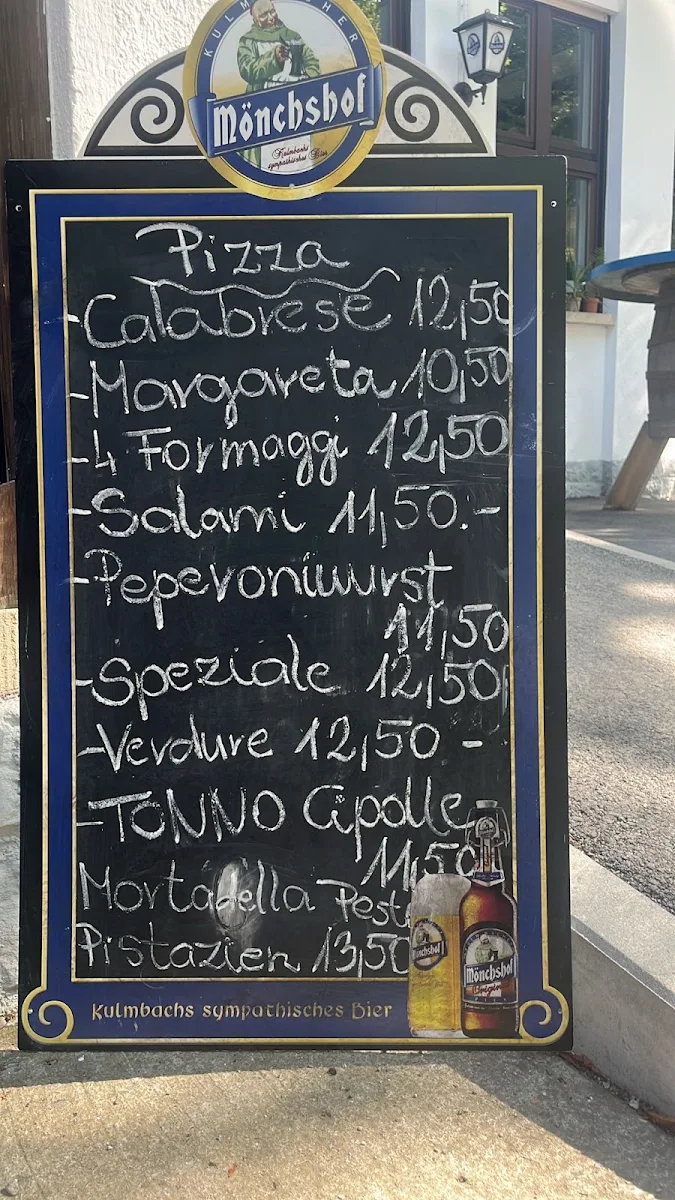 KULMBACHER
Mönchshof
Kulmbachs
sympathisches Bier
Pizza
- Calabrese 12,50
- Margareta 10,50
- 4 Formaggi 12,50
- Salami 11,50.-
- Peperoniwurst
11,50
- Speziale 12,50
- Verdure 12,50 -
- TONNO Cipolle
11,50
Mortadella Pesto
Pistazien 13,50
Mönchshof
Mönchshof
Original
Kulmbachs sympathisches Bier